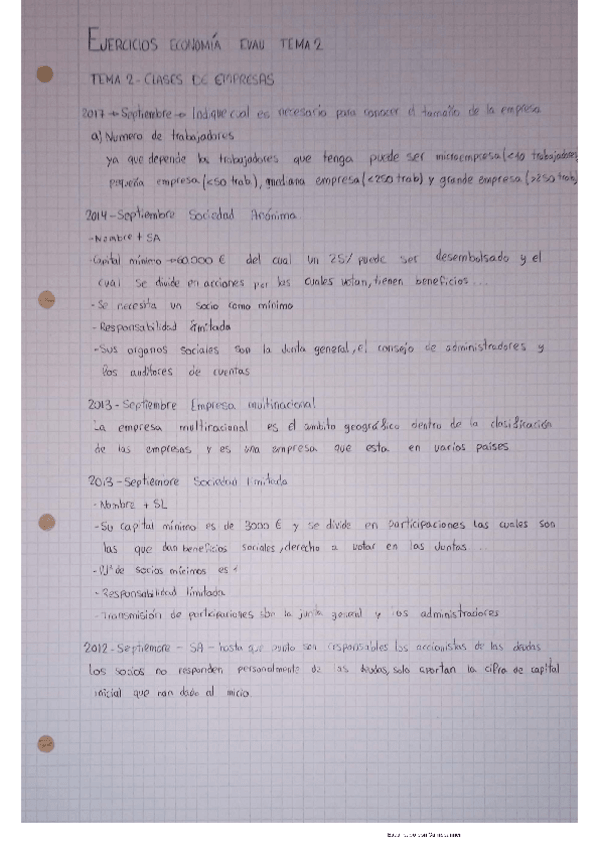 EJERCICIOS ECONOMÍA EVAU TEMA 2
TEMA 2 - CLASES DE EMPRESAS
2017 → Septiembre → Indique cual es necesario para conocer el tamaño de la empresa
a) Numero de trabajadores
ya que depende los trabajadores que tenga puede ser microempresa (<10 trabajadores)
pequeña empresa (<50 trab), mediana empresa (<250 trab) y grande empresa (>250 trab)
2014 - Septiembre Sociedad Anónima
- Nombre + SA
- Capital mínimo → 60.000 € del cual un 25% puede ser desembolsado y el
cual se divide en acciones por las cuales votan, tienen beneficios...
- Se necesita un socio como mínimo
- Responsabilidad limitada
- Sus organos sociales son la Junta general, el consejo de administradores y
los auditores de cuentas
2013 - Septiembre Empresa multinacional
La empresa multinacional es el ambito geográfico dentro de la clasificación
de las empresas y es una empresa que esta en varios paises
2013 - Septiembre Sociedad limitada
- Nombre + SL
- Su capital mínimo es de 3000 € y se divide en participaciones las cuales son
las que dan beneficios sociales, derecho a votar en las Juntas...
- Nº de socios mínimos es
- Responsabilidad limitada
- Transmisión de participaciones son la junta general y los administradores
2012 - Septiembre - SA - hasta que punto son responsables los accionistas de las deudas
Los socios no responden personalmente de las deudas, solo aportan la cifra de capital
inicial que han dado al inicio.